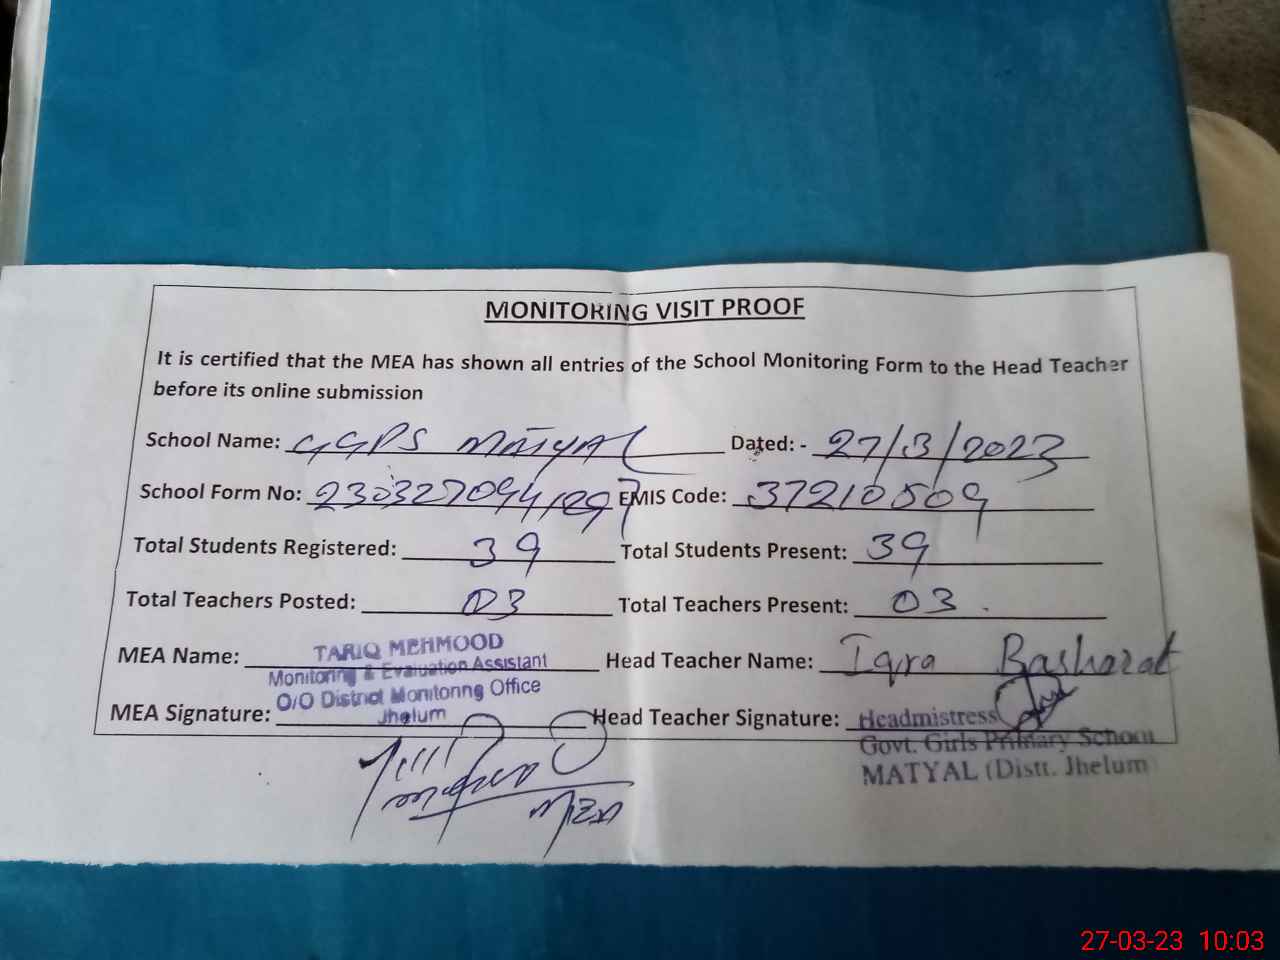 MONITORING VISIT PROOF
It is certified that the MEA has shown all entries of the School Monitoring Form to the Head Teacher
before its online submission
School Name: GGPS MATYAL Dated: - 27/3/2023
School Form No: EMIS Code: 37210509
Total Students Registered: 39 Total Students Present: 39
Total Teachers Posted: 03 Total Teachers Present: 03.
MEA Name: TARIQ MEHMOOD Head Teacher Name: Iqra Basharat
Monitoring & Evaluation Assistant
O/O District Monitoring Office
MEA Signature: Jhelum Head Teacher Signature: Headmistress
Govt. Girls Primary School
MATYAL (Distt. Jhelum)
MEA
27-03-23 10:03